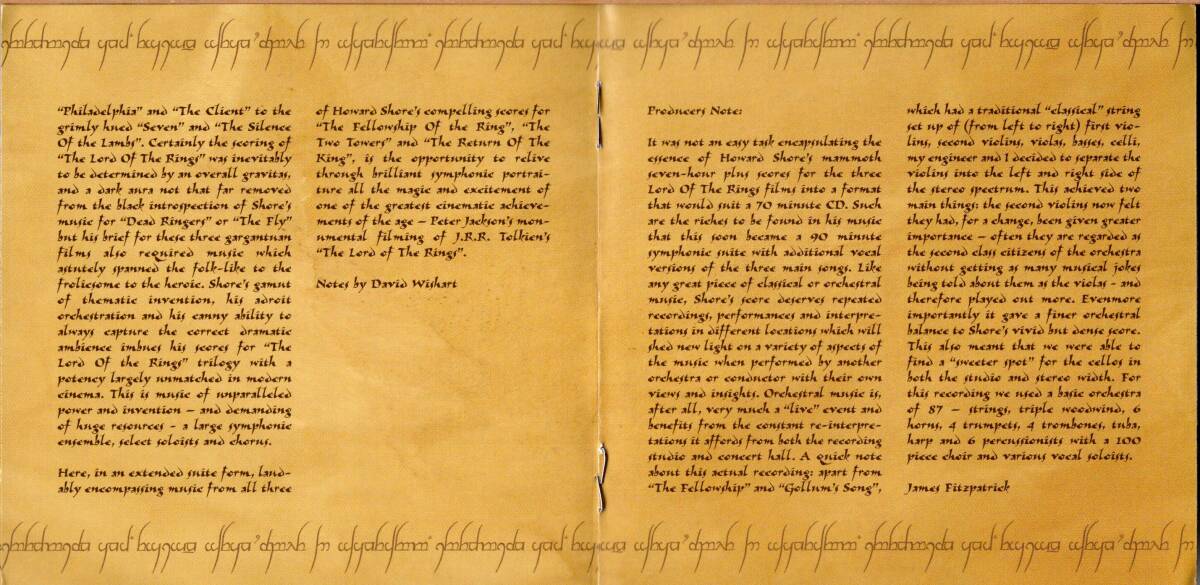 “Philadelphia” and “The Client” to the
grimly hued “Seven” and “The Silence
Of the Lambs”. Certainly the scoring of
“The Lord Of The Rings” was inevitably
to be determined by an overall gravitas,
and a dark aura not that far removed
from the black introspection of Shore’s
music for “Dead Ringers” or “The Fly”
but his brief for these three gargantuan
films also required music which
astutely spanned the folk-like to the
frolicsome to the heroic. Shore’s gamut
of thematic invention, his adroit
orchestration and his canny ability to
always capture the correct dramatic
ambience imbues his scores for “The
Lord Of the Rings” trilogy with a
potency largely unmatched in modern
cinema. This is music of unparalleled
power and invention – and demanding
of huge resources - a large symphonic
ensemble, select soloists and chorus.
Here, in an extended suite form, laud-
ably encompassing music from all three
of Howard Shore’s compelling scores for
“The Fellowship Of the Ring”, “The
Two Towers” and “The Return Of The
King”, is the opportunity to relive
through brilliant symphonic portrai-
ture all the magic and excitement of
one of the greatest cinematic achieve-
ments of the age – Peter Jackson’s mon-
umental filming of J.R.R. Tolkien’s
“The Lord of The Rings”.
Notes by David Wishart
Producers Note:
It was not an easy task encapsulating the
essence of Howard Shore’s mammoth
seven-hour plus scores for the three
Lord Of The Rings films into a format
that would suit a 70 minute CD. Such
are the riches to be found in his music
that this soon became a 90 minute
symphonic suite with additional vocal
versions of the three main songs. Like
any great piece of classical or orchestral
music, Shore’s score deserves repeated
recordings, performances and interpre-
tations in different locations which will
shed new light on a variety of aspects of
the music when performed by another
orchestra or conductor with their own
views and insights. Orchestral music is,
after all, very much a “live” event and
benefits from the constant re-interpre-
tations it affords from both the recording
studio and concert hall. A quick note
about this actual recording: apart from
“The Fellowship” and “Gollum’s Song”,
which had a traditional “classical” string
set up of (from left to right) first vio-
lins, second violins, violas, basses, celli,
my engineer and I decided to separate the
violins into the left and right side of
the stereo spectrum. This achieved two
main things: the second violins now felt
they had, for a change, been given greater
importance – often they are regarded as
the second class citizens of the orchestra
without getting as many musical jokes
being told about them as the violas - and
therefore played out more. Evenmore
importantly it gave a finer orchestral
balance to Shore’s vivid but dense score.
This also meant that we were able to
find a “sweeter spot” for the cellos in
both the studio and stereo width. For
this recording we used a basic orchestra
of 87 – strings, triple woodwind, 6
horns, 4 trumpets, 4 trombones, tuba,
harp and 6 percussionists with a 100
piece choir and various vocal soloists.
James Fitzpatrick